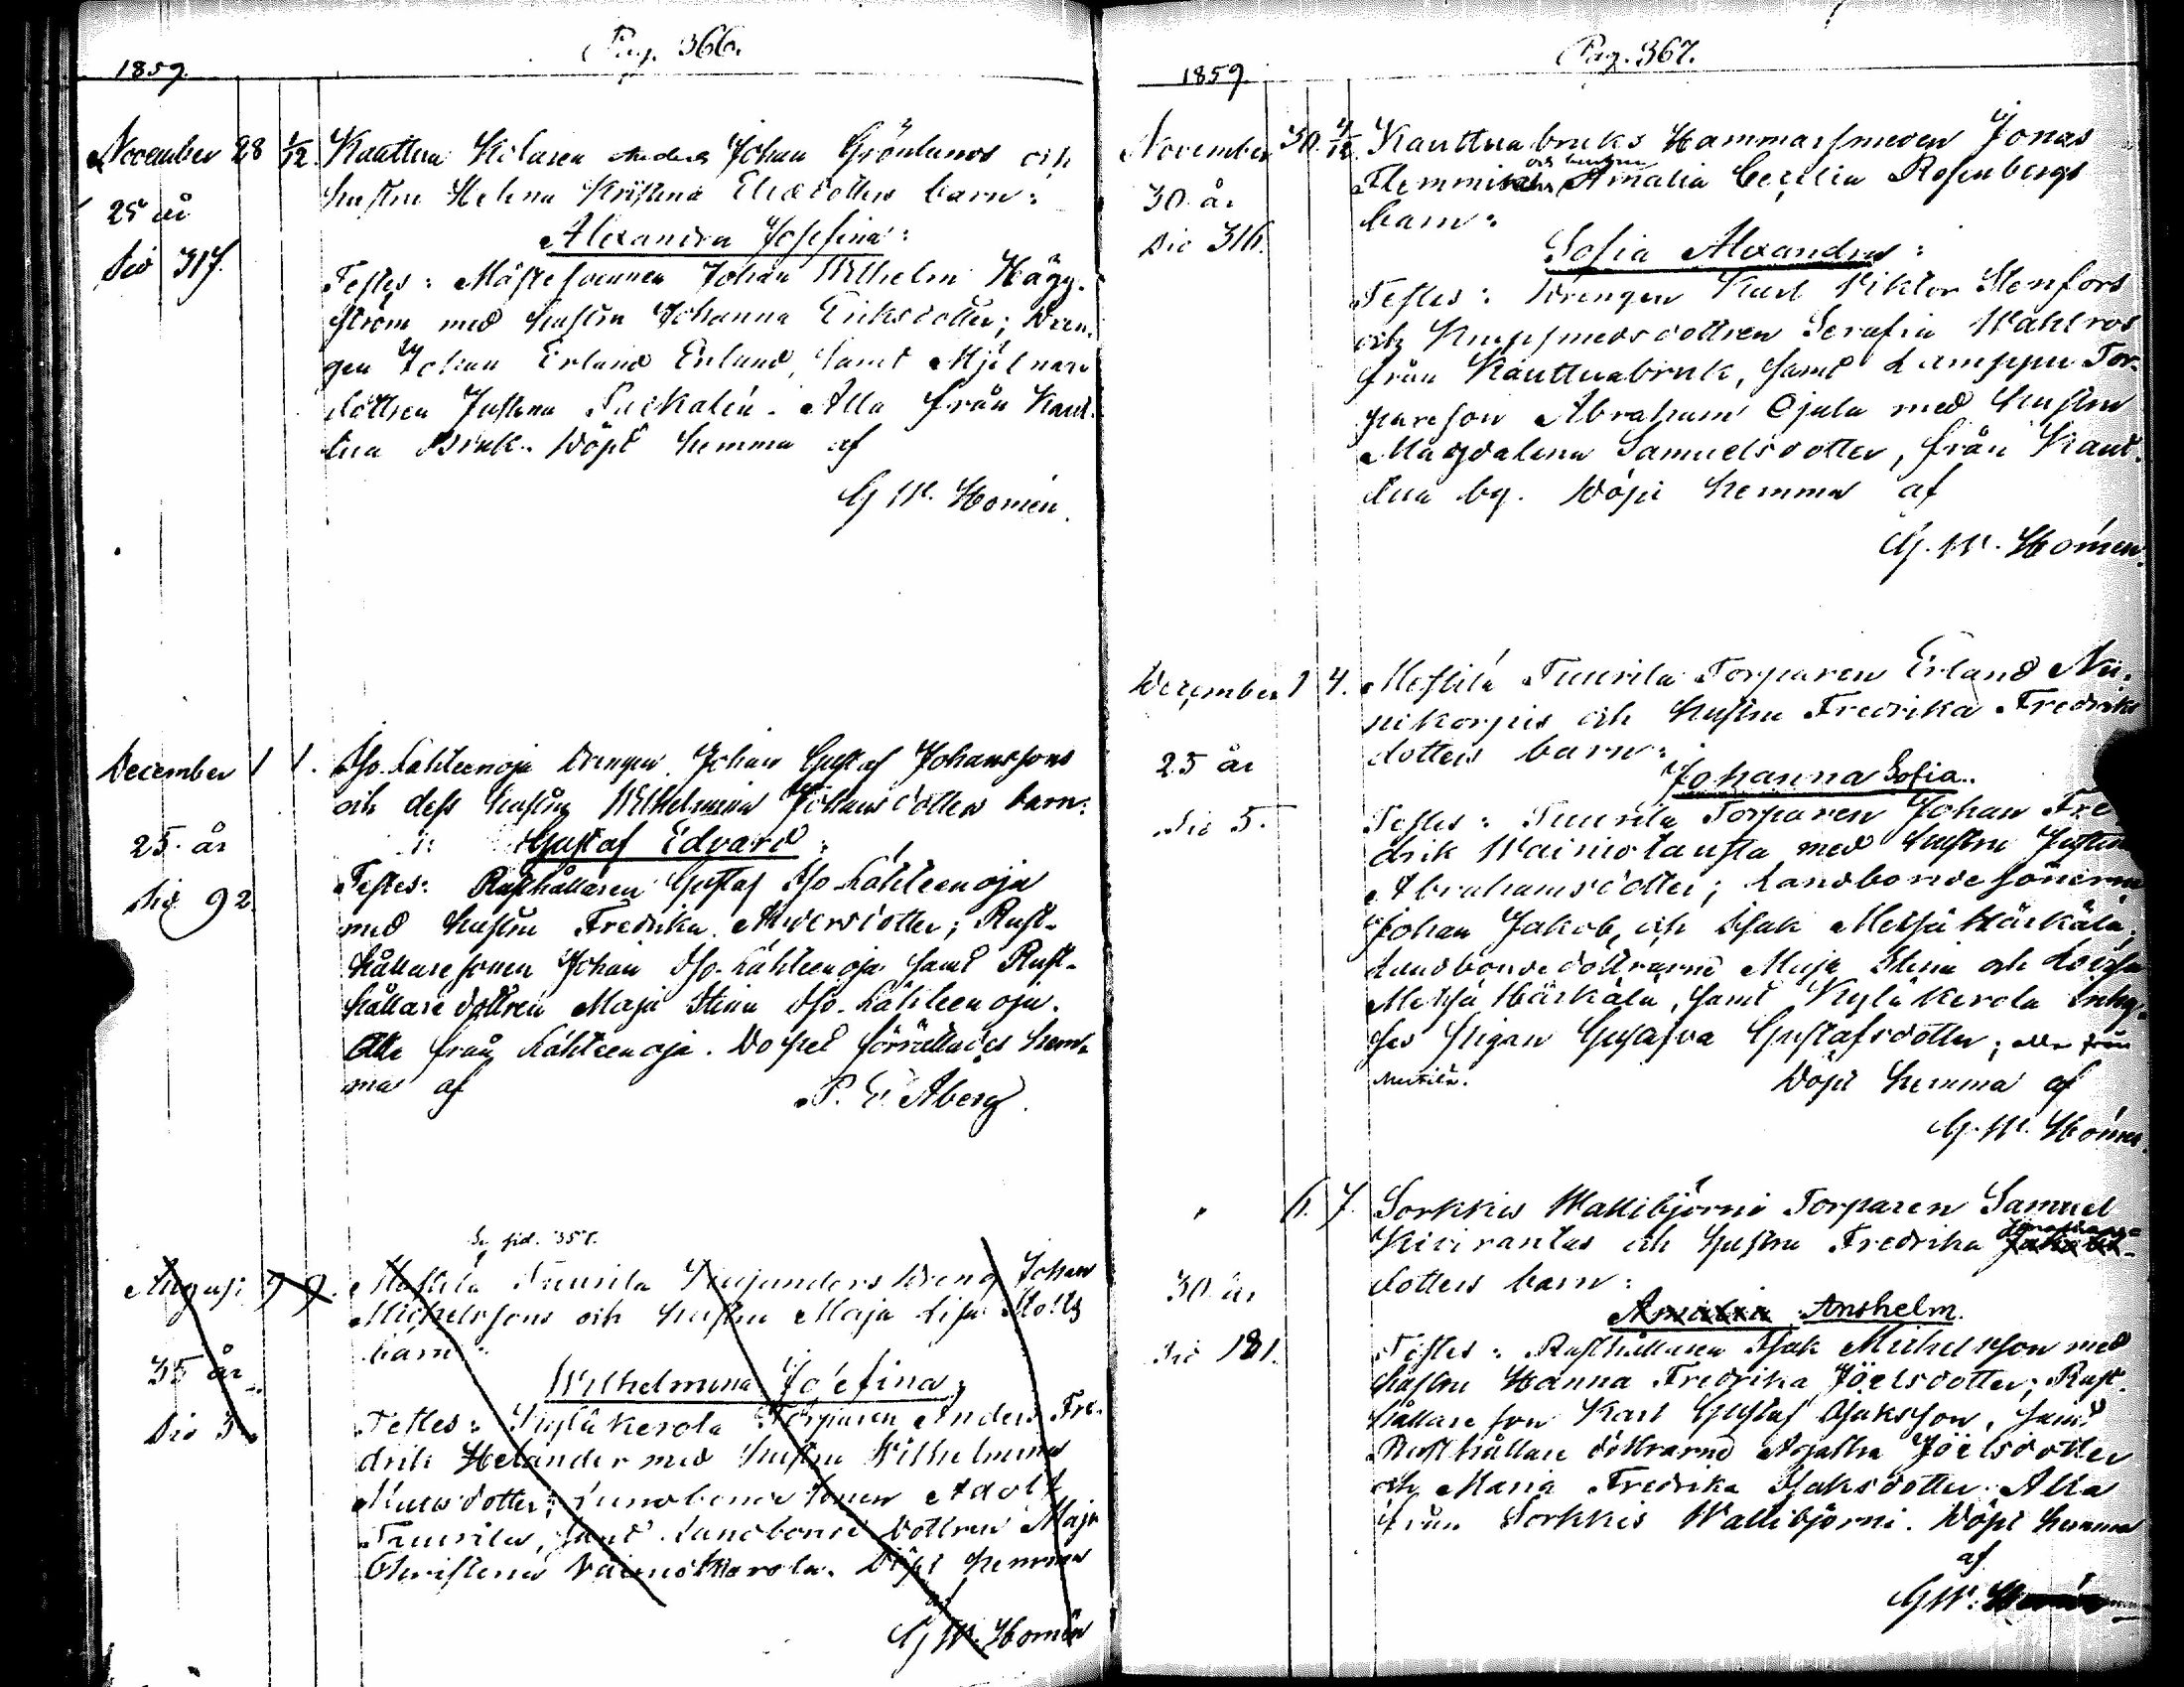 Pag. 366.
1859.
November 28 1/12 Kauttua Kolaren Anders Johan Grönlunds och
hustru Helena Kristina Eliædotters barn:
25 år
Alexandra Josefina:
Sid 317.
Testes: Mästesvennen Johan Wilhelm Hägg-
ström med hustru Johanna Eriksdotter; Dren-
gen Johan Erland Erlund, samt Mjölnare
dottren Justina Luckalén. Alla från Kaut-
tua Bruk. Döpt hemma af
G W. Homén.
December 1 1. Iso Lähteenoja Drengen Johan Gustaf Johanssons
och dess hustru Wilhelmina Johansdotters barn:
25 år
Gustaf Edvard:
Sid 92.
Testes: Rusthållaren Gustaf Iso Lähteenoja
med hustru Fredrika Andersdotter; Rust-
hållaresonen Johan Iso-Lähteenoja samt Rust-
hållare dottren Maja Stina Iso-Lähteenoja.
Alla från Lähteenoja. Dopet förrättades hem-
ma af
P. E. Åberg.
Se sid. 357.
Augusti 9 9. Mestilä Tuurila Drejunders Dreng Johan
Michelssons och hustru Maja Lisa
barn:
35 år
Wilhelmina Josefina,
Sid 3
Testes: Kyläkerola Torparen Anders Fre-
drik Helander med hustru Wilhelmina
dotter; Landbonde sonen Adolf
Tuurila, samt Landbonde dottren Maja
Christina Vainiokerola. Döpt hemma
af
G W. Homén
Pag. 367.
1859.
November 30. 4/12 Kauttua bruks Hammarsmeden Jonas
och hustru
Flemmichs Amalia Cecilia Rosenbergs
30 år
barn:
Sid 316.
Sofia Alexandra:
Testes: Drengen Karl Viktor Stenfors
och Knippsmedsdottren Serafia Wahlros
från Kauttuabruk, samt Lamppu Tor-
pareson Abraham Ojala med hustru
Magdalena Samuelsdotter, från Kaut-
tua by. Döpt hemma af
G. W. Homén.
December 1 4. Mestilä Tuurila Torparen Erland Nii-
nikorpis och hustru Fredrika Fredriks
dotters barn:
25 år
Johanna Sofia.
Sid 5.
Testes: Tuurila Torparen Johan Fre-
drik Wainiotausta med hustru Justina
Abrahamsdotter; Landbondesönerna
Johan Jakob, och Isak Metsä Härkälä;
Landbondedöttrarne Maja Stina och Lovisa
Metsä Härkälä, samt Kyläkerola Inhy-
ses Pigan Gustafva Gustafsdotter; alla från
Mestilä.
Döpt hemma af
G. W. Homén
" 6. 7. Sorkkis Wallibjörni Torparen Samuel
Kivirantas och hustru Fredrika Jakobs-
dotters barn:
30 år
Amalia Anshelm.
Sid 181.
Testes: Rusthållaren Isak Michelsson med
hustru Hanna Fredrika Jöelsdotter; Rust-
hållare son Karl Gustaf Isaksson, samt
Rusthållare döttrarne Agatha Jöelsdotter
och Maria Fredrika Isaksdotter. Alla
från Sorkkis Wallibjörni. Döpt hemma
af
G W. Homén